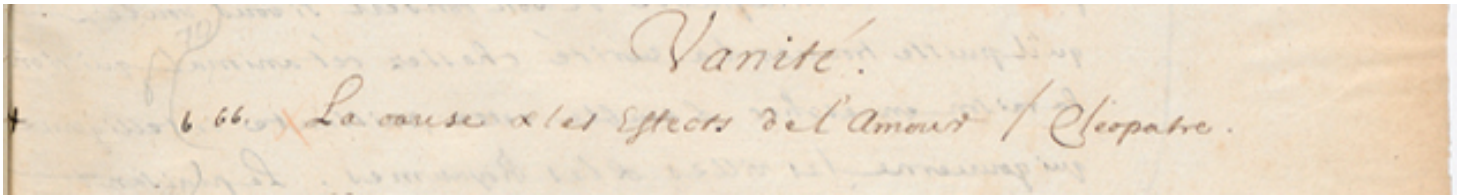 Vanité.
+ 6 66. La cause & les Effects de l'Amour / Cléopatre.